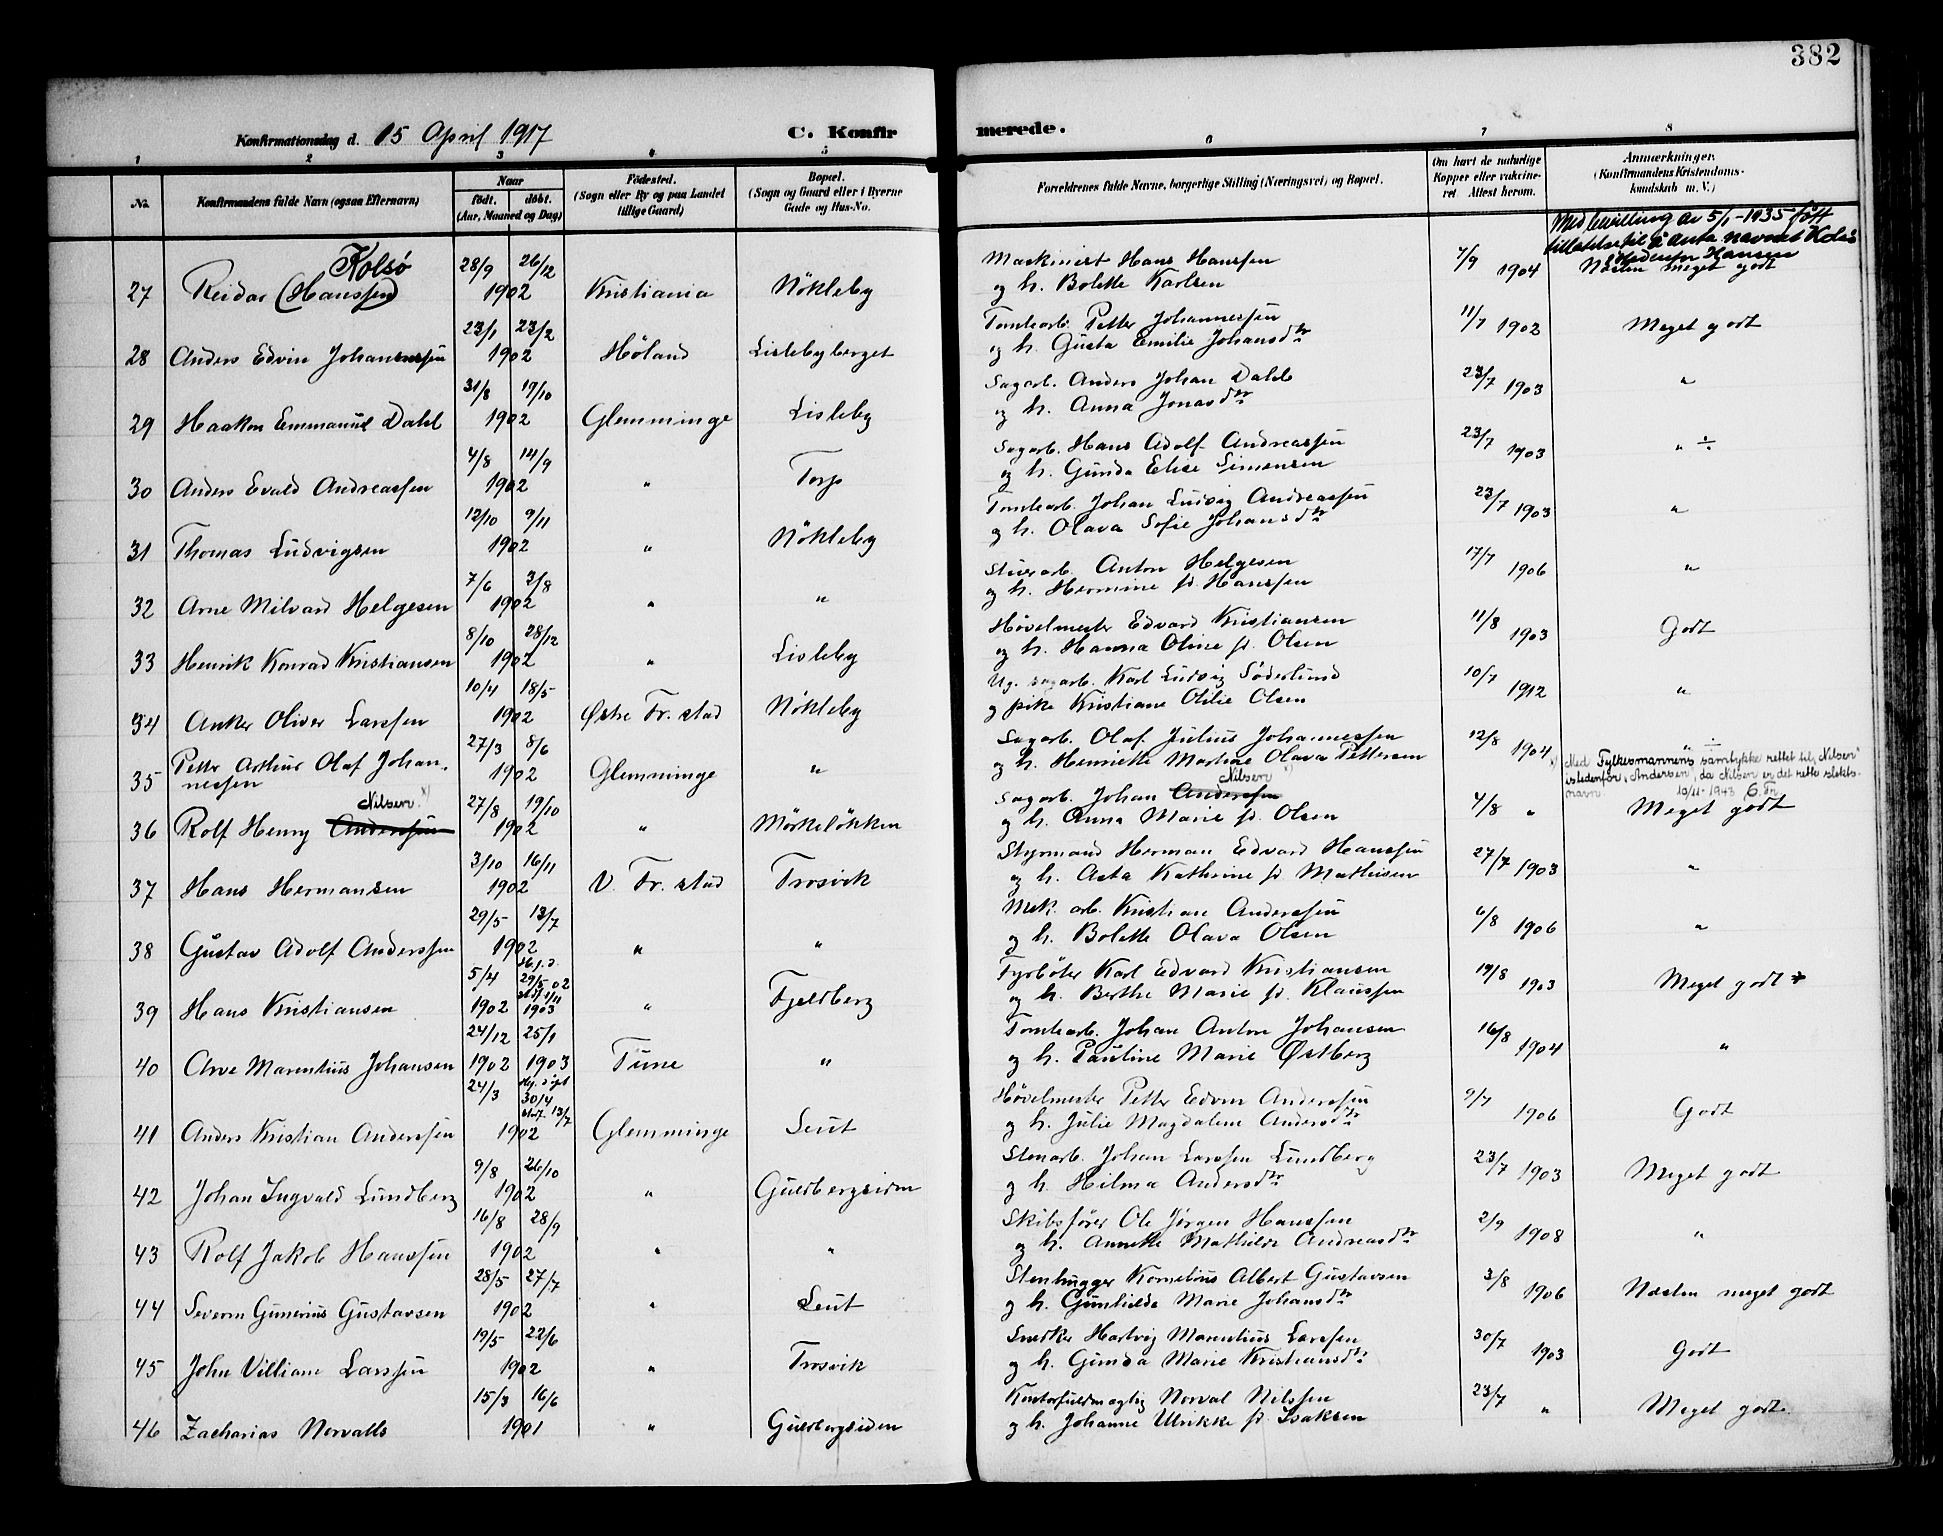 382
Konfirmationsdag d. 15 April 1917
C. Konfirmerede.
1 2 3 4 5 6 7 8
No. Konfirmandens fulde Navn (ogsaa Efternavn) Naar født. døbt. (Aar, Maaned og Dag) Fødested. (Sogn eller By og paa Landet tillige Gaard) Bopæl. (Sogn og Gaard eller i Byerne Gade og Hus-No. Forældrenes fulde Navne, borgerlige Stilling (Næringsvei) og Bopæl. Om havt de naturlige Kopper eller vaccineret Attest herom. Anmærkninger. (Konfirmandens Kristendomskundskab m. V.)
Med bevilling av 5/1-1935 fått
tillatelse til å anta navnet Kolsö
istedenfor Hansen
Kolsø 28/9 26/12 Maskinist Hans Hanssen 7/9
27 Reidar (Hanssen) 1902 Kristiania Nökleby og h. Bolette Karlsen 1904 Næsten meget godt
23/1 23/2 Tomtearb. Petter Johannessen 11/7 1902 Meget godt
28 Anders Edvin Johannessen 1902 Høland Lislebyberget og h. Gusta Emilie Johansdtr
31/8 19/10 Sagarb. Anders Johan Dahl 23/7 1903 "
29 Haakon Emmanuel Dahl 1902 Glemminge Lisleby og h. Anna Jonasdtr
4/8 14/9 Sagarb. Hans Adolf Andreassen 23/7 1903 " ÷
30 Anders Evald Andreassen 1902 " Torp og h. Gunda Elise Simensen
12/10 9/11 Tomtearb. Johan Ludvig Andreassen 23/7 1903 "
31 Thomas Ludvigsen 1902 " Nökleby og h. Olava Sofie Johansdtr
7/6 3/8 Stuerarb. Anton Helgesen 17/7 1906 "
32 Arne Milvard Helgesen 1902 " " og h. Hermine f. Hanssen
8/10 28/12 Høvelmester Edvard Kristiansen 11/8 1903 Godt
33 Henrik Konrad Kristiansen 1902 " Lisleby og h. Hanna Oline f. Olsen
10/4 18/5 Ug. sagarb. Karl Ludvig Söderlund 10/7 1912 "
34 Anker Oliver Larssen 1902 Østre Fr. stad Nökleby og pike Kristiane Otilie Olsen
27/3 8/6 Sagarb. Olaf Julius Johannessen 12/8 1904 " ÷
35 Petter Arthur Olaf Johannessen 1902 Glemminge " og h. Henriette Martine Olava Pettersen
x) Med Fylkesmannens samtykke rettet til „Nilsen"
istedenfor „Andersen", da Nilsen er det rette slektsnavn. 19/11-1943
Nilsen x) 27/8 19/10 Sagarb. Johan Anderssen Nilsen x) 4/8 " Meget godt
36 Rolf Henry Anderssen 1902 " Mörkelökken og h. Anna Marie f. Olsen
3/10 16/11 Styrmand Herman Edvard Hanssen 27/7 1903 "
37 Hans Hermansen 1902 V. Fr. stad Trosvik og h. Asta Kathrine f. Mathisen
29/5 13/7 Mek. arb. Kristian Anderssen 6/8 1906 "
38 Gustav Adolf Anderssen 1902 " " og h. Bolette Olava Olsen
5/4 Hj. d. 29/5 02 Fyrböter Karl Edvard Kristiansen 19/8 1903 Meget godt
39 Hans Kristiansen 1902 1/11 1903 " Fjeldberg og h. Berthe Marie f. Klaussen
24/12 25/1 Tomtearb. Johan Anton Johansen 16/8 1904 "
40 Arve Marentius Johansen 1902 1903 Tune " og h. Pauline Marie Østberg
24/3 Hj. døpt 30/4 13/7 Høvelmester Petter Edvin Anderssen 9/7 1906 Godt
41 Anders Kristian Anderssen 1902 Glemminge Leut og h. Julie Magdalene Andersdtr
9/8 26/10 Stenarb. Johan Larssen Lundberg 23/7 1903 Meget godt
42 Johan Ingvald Lundberg 1902 " Guldbergsiden og h. Hilma Andersdtr
16/8 28/9 Skibsfører Ole Jørgen Hanssen 2/9 1908 "
43 Rolf Jakob Hanssen 1902 " " og h. Annette Mathilde Andreasdtr
28/5 27/7 Stenhugger Kornelius Albert Gustavsen 3/8 1906 Næsten meget godt
44 Severin Gunerius Gustavsen 1902 " Leut og h. Gunhilde Marie Johansdtr
19/5 22/6 Snedker Hartvig Marentius Larssen 30/7 1903 Godt
45 John Villiam Larssen 1902 " Trosvik og h. Gunda Marie Kristiansdtr
15/3 16/6 Kontorfuldmægtig Norval Nilssen 23/7 " Meget godt.
46 Zacharias Norvalls 1901 " Guldbergsiden og h. Johanne Ulrikke f. Isaksen